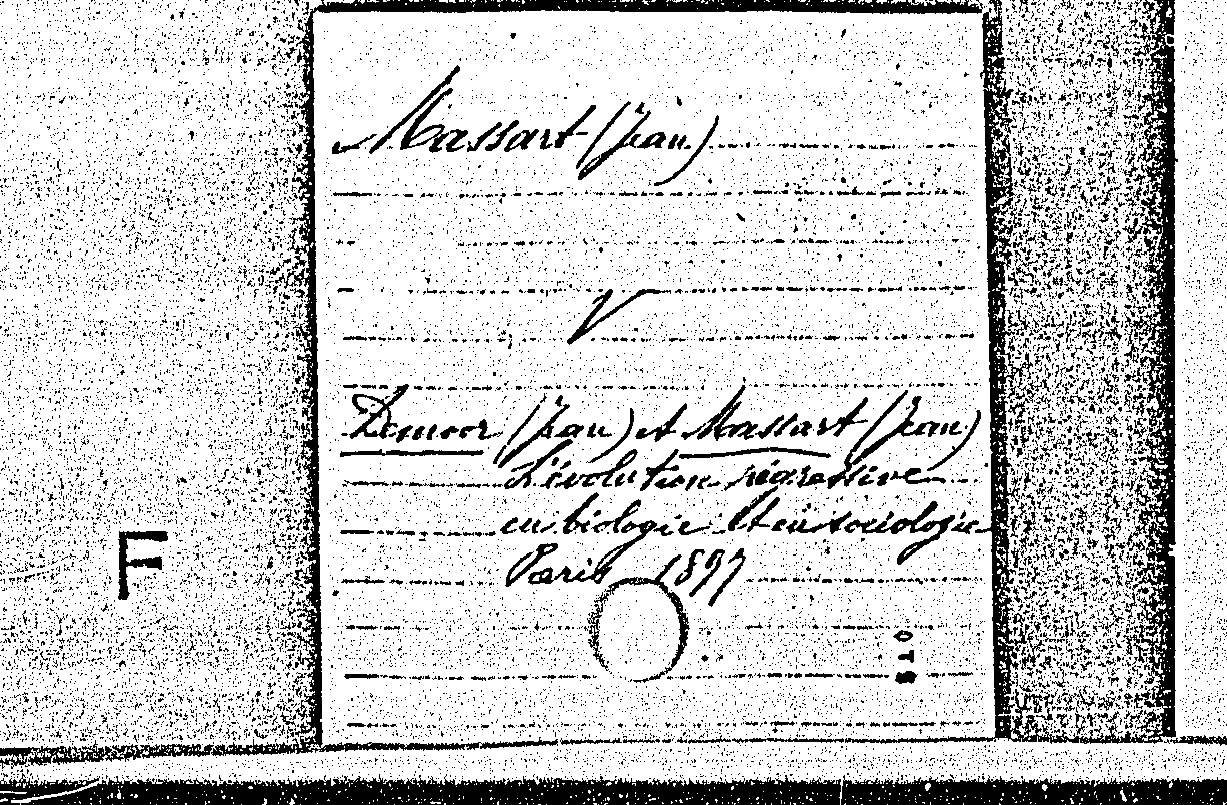 Massart (Jean)
V
Demoor (Jean) et Massart (Jean)
L'évolution régressive
en biologie et en sociologie
Paris 1897
F